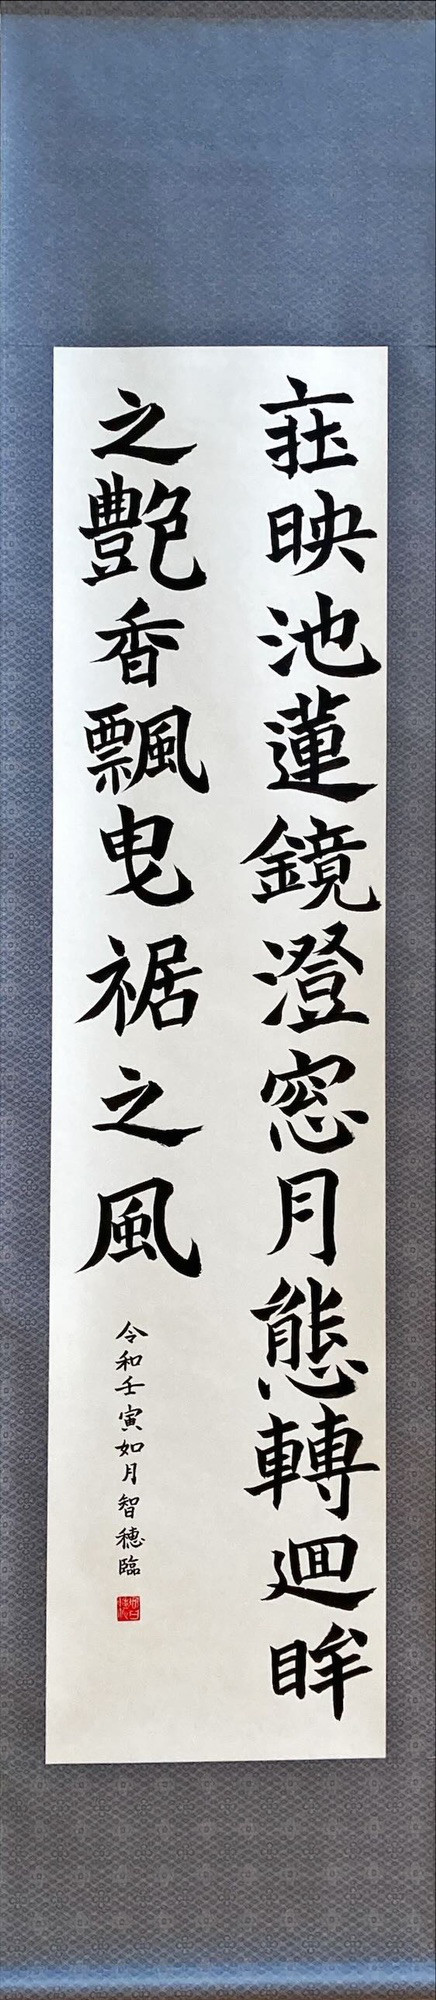 莊映池蓮鏡澄窓月態轉迴眸
之艷香飄曳裾之風
令和壬寅如月智穂臨